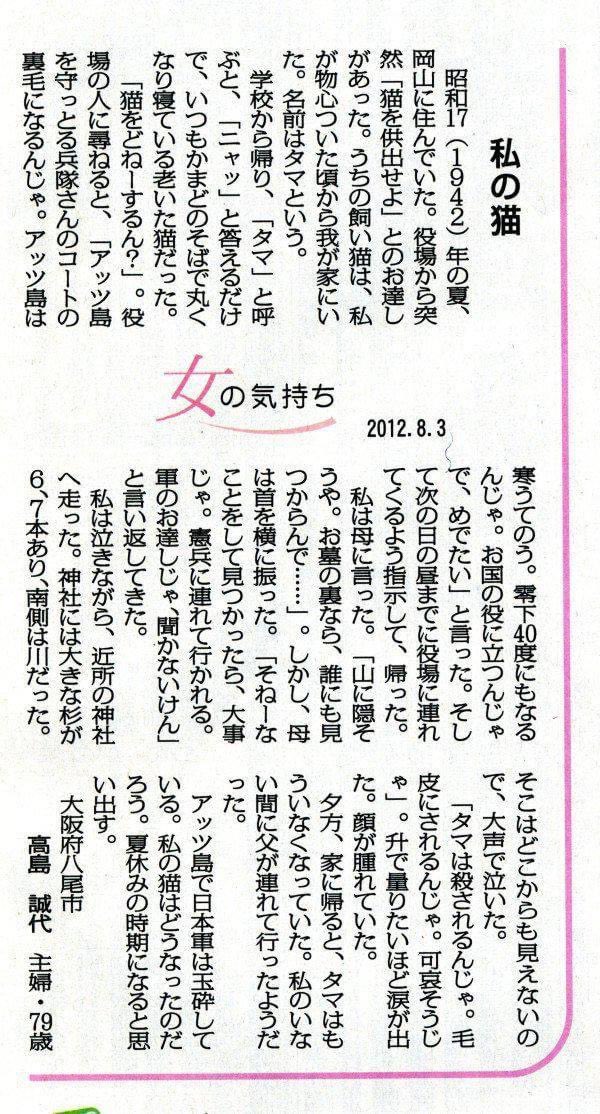 私の猫
　昭和17（1942）年の夏、
岡山に住んでいた。役場から突
然「猫を供出せよ」とのお達し
があった。うちの飼い猫は、私
が物心ついた頃から我が家にい
た。名前はタマという。
　学校から帰り、「タマ」と呼
ぶと、「ニャッ」と答えるだけ
で、いつもかまどのそばで丸く
なり寝ている老いた猫だった。
「猫をどねーするん？」。役
場の人に尋ねると、「アッツ島
を守っとる兵隊さんのコートの
裏毛になるんじゃ。アッツ島は
女の気持ち
2012.8.3
寒うてのう。零下40度にもなる
んじゃ。お国の役に立つんじゃ
で、めでたい」と言った。そし
て次の日の昼までに役場に連れ
てくるよう指示して、帰った。
　私は母に言った。「山に隠そ
うや。お墓の裏なら、誰にも見
つからんで……」。しかし、母
は首を横に振った。「そねーな
ことをして見つかったら、大事
じゃ。憲兵に連れて行かれる。
軍のお達しじゃ、聞かないけん」
と言い返してきた。
　私は泣きながら、近所の神社
へ走った。神社には大きな杉が
6、7本あり、南側は川だった。
そこはどこからも見えないの
で、大声で泣いた。
「タマは殺されるんじゃ。毛
皮にされるんじゃ。可哀そうじ
ゃ」。升で量りたいほど涙が出
た。顔が腫れていた。
　夕方、家に帰ると、タマはも
ういなくなっていた。私のいな
い間に父が連れて行ったようだ
った。
　アッツ島で日本軍は玉砕して
いる。私の猫はどうなったのだ
ろう。夏休みの時期になると思
い出す。
大阪府八尾市
高島　誠代　主婦・79歳